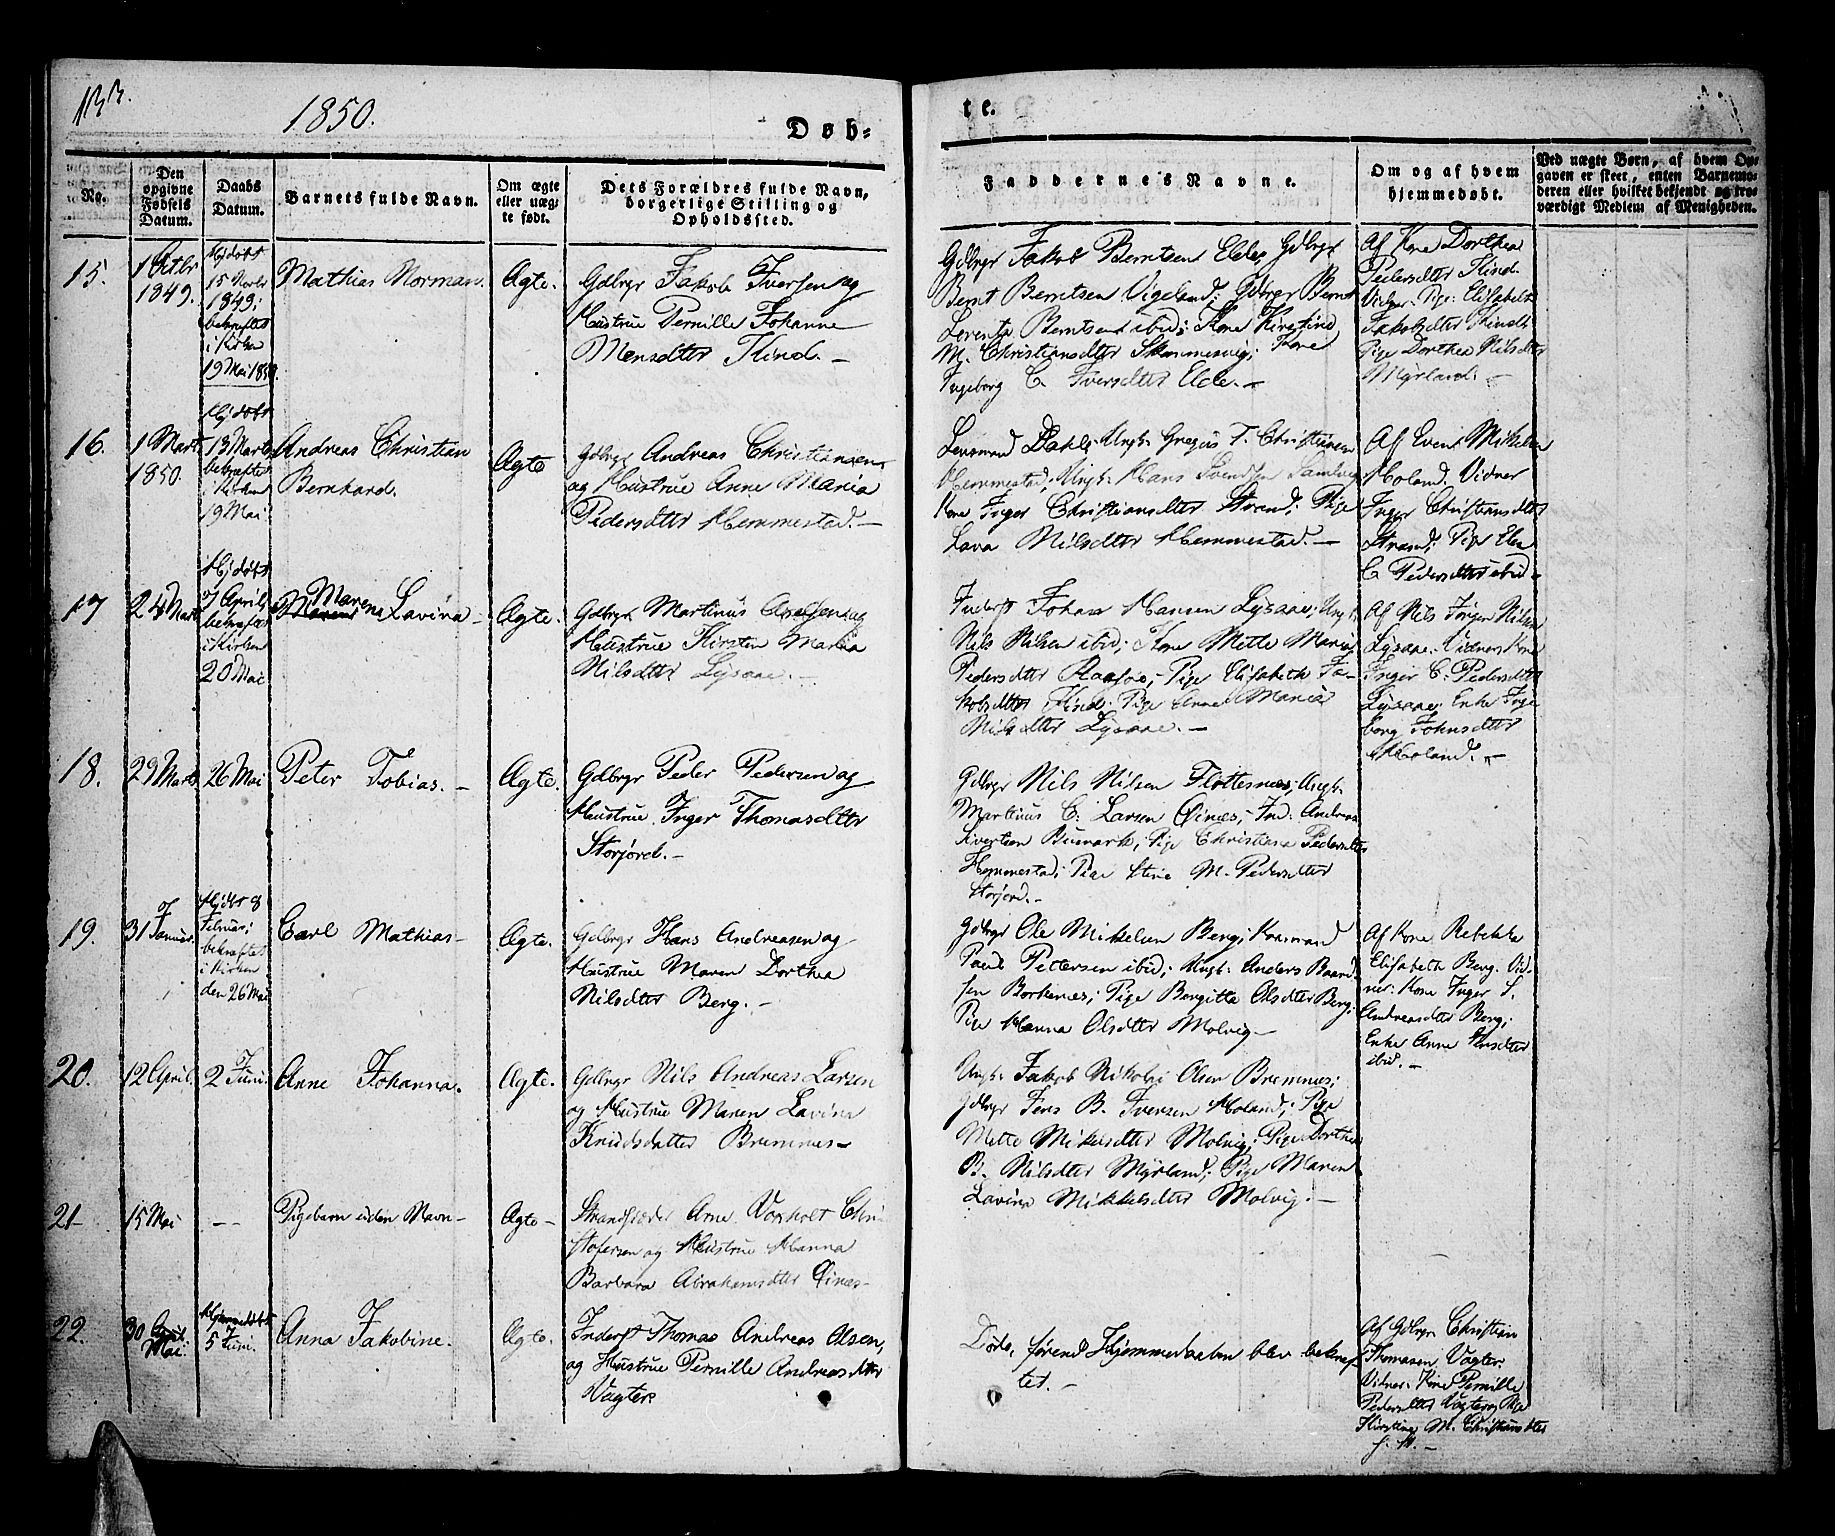 133.
1850.
Døb-
te.
No.
Den
opgivne
Fødsels
Datum.
Daabs
Datum.
Barnets fulde Navn.
Om ægte
eller uæg-
te født.
Dets Forældres fulde Navn,
borgerlige Stilling og
Opholdssted.
Faddernes Navne.
Om og af hvem
hjemmedøbt.
Ved uægte Børn, af hvem Op-
gaven er skeet, enten Barnemo-
deren eller hvilket bekjendt og tro-
værdigt Medlem af Menigheden.
15.
1 Octbr
1849.
Hjdøbt
15 Novbr
1849;
bekræftet
i Kirken
19 Mai 1850.
Mathias Norman.
Ægte.
Gdbrgr Jakob Iversen og
Hustrue Pernille Johanne
Monsdtter Kind. –
Gdbrgr Jakob Berntsen Elde; Gdbrgr
Bernt Berntsen Vigeland; Gdbrgr Bernt
Lorents Berntsen ibid; Kone Kirstine
M. Christiansdtter Skommesvig; Kone
Ingeborg C. Iversdtter Elde. –
Af Kone Dorthea
Pedersdtter Kind.
Vidner: Pige: Elisabeth
Jakobsdtter Kind;
Pige Dorthea Nilsdtter
Myrland. –
16.
1 Marts
1850.
Hjdøbt
13 Marts
bekræftet
i Kirken
19 Mai
Andreas Christian
Bernhard.
Ægte
Gdbrgr Andreas Christiansen
og Hustrue Anne Maria
Pedersdtter Hemmestad. –
Lensmand Dahl; Ungk: Gregus T. Christiansen
Hemmestad; Ungk: Hans Svendsen
Kone Inger Christiansdtter Strand; Pige
Lava Nilsdtter Hemmestad. –
Af Evert Mikelsen
Holand. Vidner
Inger Christiansdtter
Strand; Pige Elen
C. Pedersdtter ibid –
17
24 Marts
Hjdøbt
7 April;
bekræftet
i Kirken
20 Mai
Marena Lavina –
Ægte.
Gdbrgr Martinus Axelsen og
Hustrue Kirsten Maria
Nilsdtter Lysaae. –
Inderst Johan Hansen Lysaae; Ungk:
Nils Nilsen ibid; Kone Mette Maria
Pedersdtter; Pige Elisabeth Ja-
kobsdtter Kind; Pige Anne Maria
Nilsdtter Lysaae. –
Af Nils Jørgen Nilsen
Lysaae. Vidner: Kone
Inger C. Pedersdtter
Lysaae; Enke Inge
borg Johnsdtter
Holand. –
18.
29 Marts
26 Mai
Peter Tobias. –
Ægte.
Gdbrgr Peder Pedersen og
Hustrue Inger Thomasdtter
Storjord. –
Gdbrgr Nils Nilsen Flottesnes; Ungk:
Martinus C. Larsen Øines; Ind: Andreas
Sivertsen Bremark; Pige Christiane Pedersdtter
Hemmestad; Pige Stine M. Pedersdtter
Storjord. –
19.
31 Januar.
Hjdbt 8
Februar;
bekræftet
i Kirken
den 26 Mai
Carl Mathias –
Ægte.
Gdbrgr Hans Andreasen og
Hustrue Maren Dorthea
Nilsdtter Berg. –
Gdbrgr Ole Mikelsen Berg; Kaarmand
Povel Pettersen ibid; Ungk: Anders Baard-
sen Borkenes; Pige Bergitta Olsdtter Berg;
Pige Hanna Olsdtter Molvig –
Af Kone Rebekka
Elisabeth Berg. Vid-
ner: Kone Inger S.
Andreasdtter Berg;
Enke Anne Hansdtter
ibid. –
20.
12 April.
2 Juni.
Anne Johanna.
Ægte.
Gdbrgr Nils Andreas Larsen
og Hustrue Maren Lavina
Knudsdatter Bremnes –
Ungk: Jakob Nikolai Olsen Bremnes;
Gdbrgr Jens B. Iversen Holand; Pige
Mette Mikelsdtter Molvig; Pige Dorthea
B. Nilsdtter Myrland; Pige Maren
Lavina Mikkelsdtter Molvig. –
21 –
15 Mai
– –
Pigebarn uden Navn –
Ægte –
Strandsidder Arne Normolt Chri
stofersen og Hustrue Hanna
Barbara Abrahamsdtter Øines –
22.
30 April
Mai.
Hjemmedøbt
5 Juni.
Anna Jakobine.
Ægte.
Inderst Thomas Andreas Olsen,
og Hustrue Pernille Andreasdtter
Vagter.
Døde, førend Hjemmedaaben blev bekræf-
tet. –
Af Gdbrgr Christian
Thomasen Vagter.
Vidner: Kone Pernille
Pedersdtter Vagter og Pige
Kirstine M. Christiansdtter